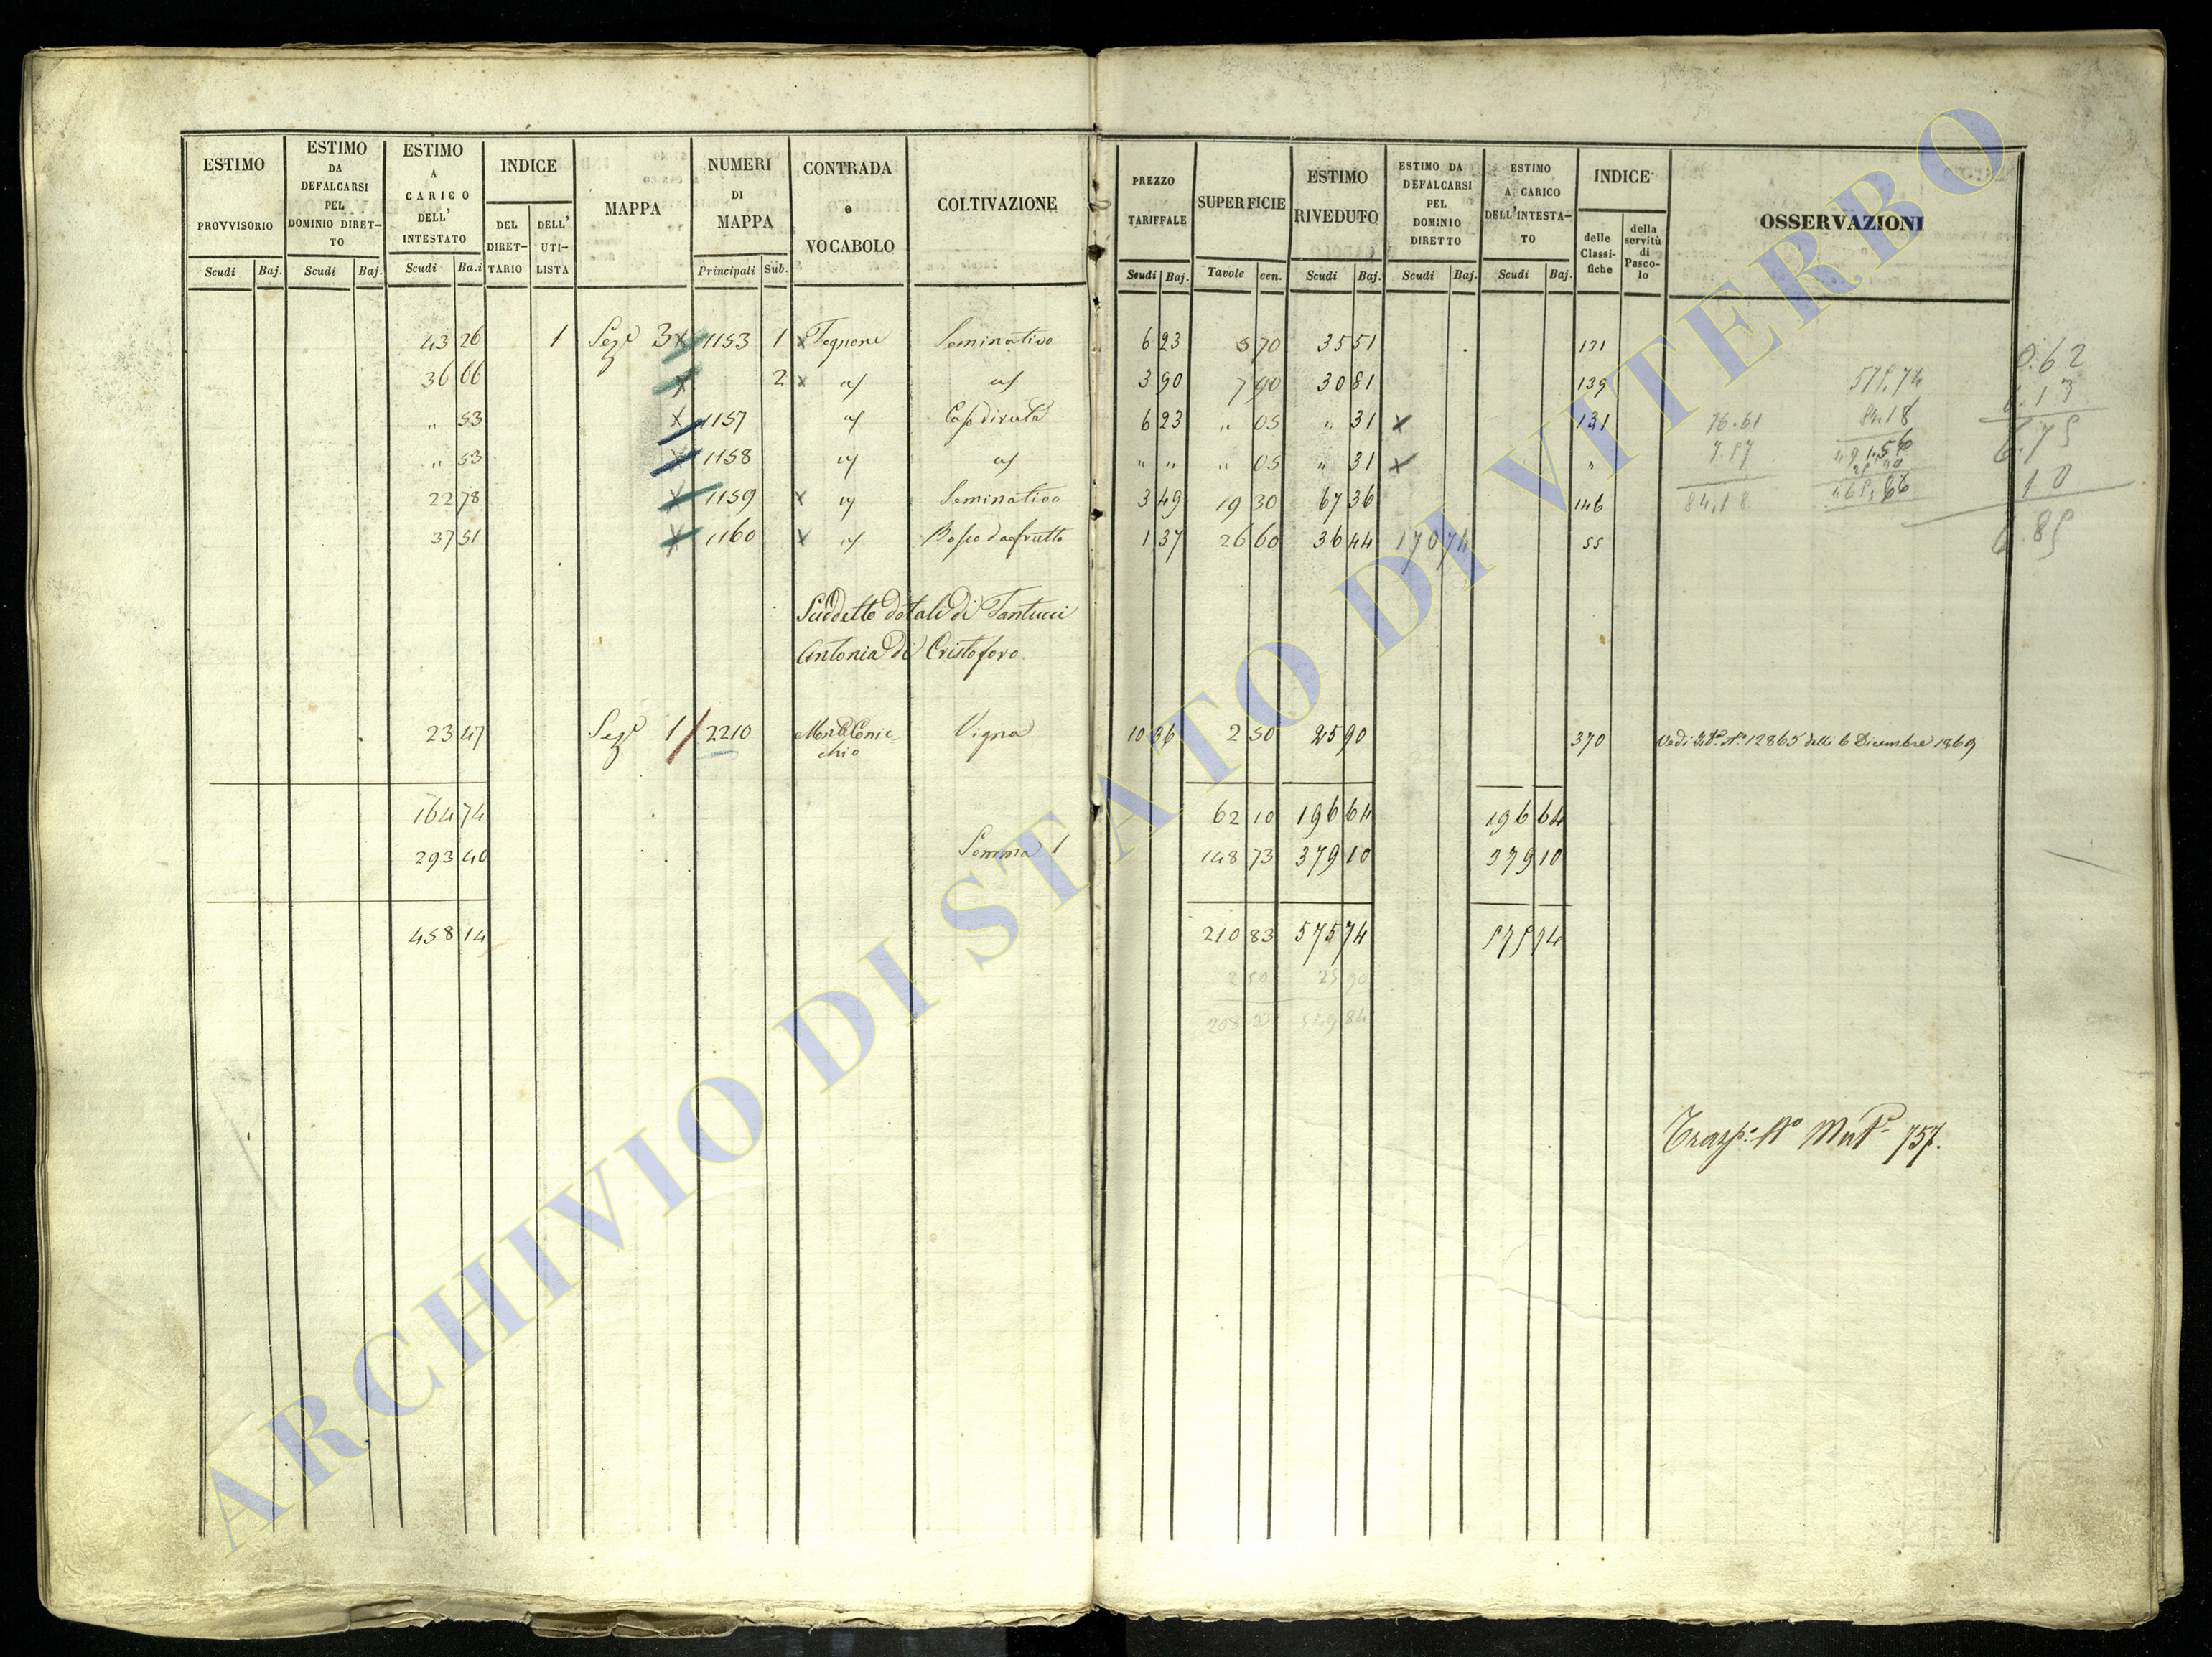 ESTIMO PROVVISORIO Scudi Baj.
ESTIMO DA DEFALCARSI PEL DOMINIO DIRETTO Scudi Baj.
ESTIMO A CARICO DELL' INTESTATO Scudi Ba.i
INDICE DEL DIRETTARIO DELL' UTILISTA
MAPPA
NUMERI DI MAPPA Principali Sub.
CONTRADA o VOCABOLO
COLTIVAZIONE
PREZZO TARIFFALE Scudi Baj.
SUPERFICIE Tavole cen.
ESTIMO RIVEDUTO Scudi Baj.
ESTIMO DA DEFALCARSI PEL DOMINIO DIRETTO Scudi Baj.
ESTIMO A CARICO DELL'INTESTATO Scudi Baj.
INDICE delle Classifiche della servitù di Pascolo
OSSERVAZIONI
43 26 1 Sez.e 3 x 1153 1 x Tognone Seminativo 6 23 5 70 35 51 131
36 66 x 2 x id id 3 90 7 90 30 81 139
" 53 x 1157 id Casa diruta 6 23 " 05 " 31 x 131
" 53 x 1158 id id " " " 05 " 31 x "
22 78 x 1159 x id Seminativo 3 49 19 30 67 36 146
37 51 x 1160 x id Bosco da frutto 1 37 26 60 36 44 170 74 55
Suddetto dotale di Fantucci
Antonia di Cristoforo
23 47 Sez.e 1 2210 Monte Conicchio Vigna 10 36 2 50 25 90 370 Vedi N.° 12865 delli 6 Dicembre 1869
164 74 62 10 196 64 196 64
293 40 Somma 1 148 73 379 10 379 10
458 14 210 83 575 74 575 74
2 50 25 90
208 33 549 84
575.74
76.61 84.18
7.57 491.56
84.18 465.66
0.62
6.13
6.75
10
6.85
Trasp: N° Mat.e 757.
ARCHIVIO DI STATO DI VITERBO